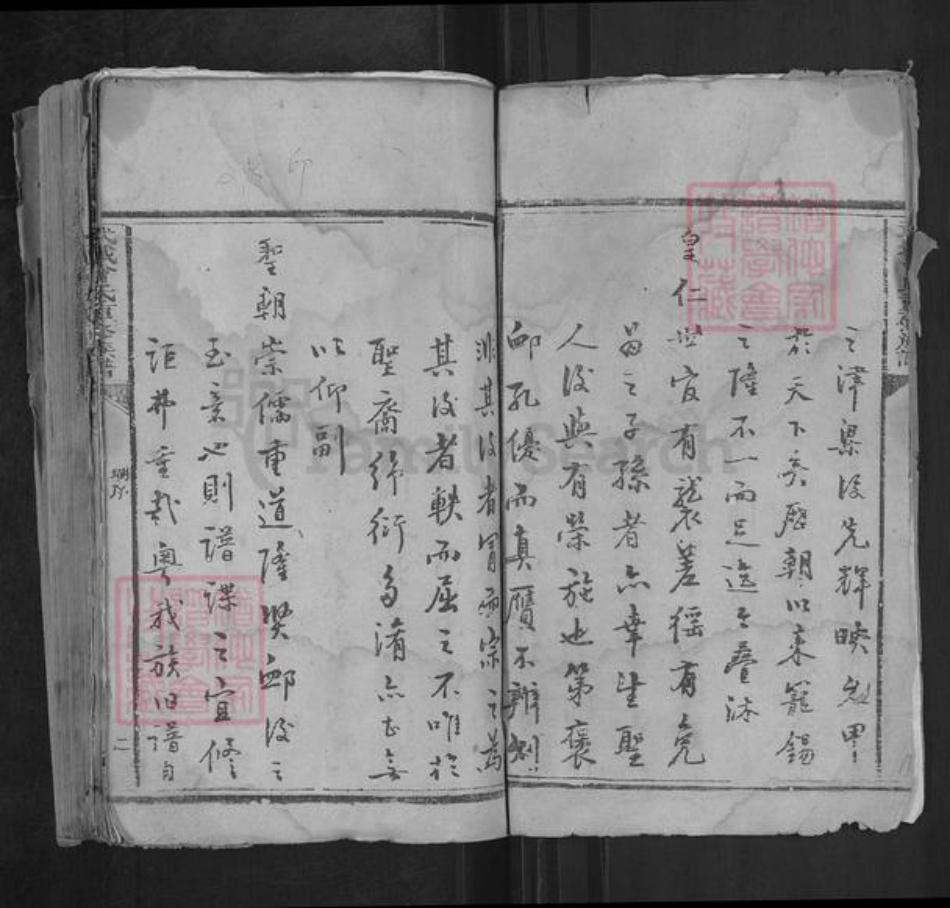 之澤與後先輝暎敻甲
於天下矣歷朝以來寵錫
之隆不一而足迄今疊沐
皇仁世官有襲差徭有免
曷之子孫者亦幸生聖
人後與有榮施也第褒
邮孔優而真贋不辨
非其後者冒而宗之為
其後者軼而屈之不唯於
聖裔綿衍多淆亦無
以仰副
聖朝崇儒重道隆獎邮後之
至意也則譜諜之宜修
詎弗重哉粵我族旧譜自
二
FamilySearch